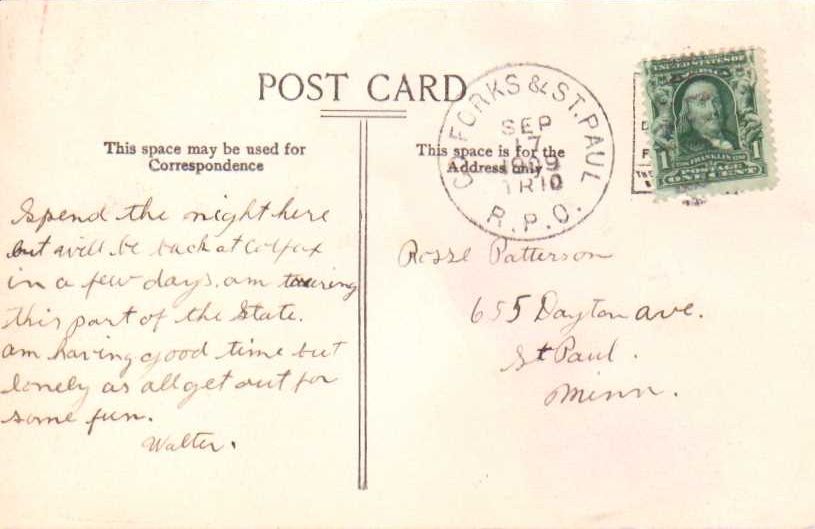 POST CARD
This space may be used for
Correspondence
This space is for the
Address only
G. FORKS & ST. PAUL
SEP
17
1909
TR10
R.P.O.
1 FRANKLIN 1
POSTAGE
ONE CENT
Spend the night here
but will be back at Colfax
in a few days. am touring
this part of the State.
am having good time but
lonely as all get out for
some fun.
Walter.
Patterson
655 Dayton ave.
St Paul.
Minn.